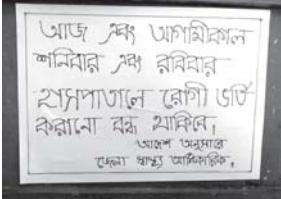 আজ এবং আগামীকাল
শনিবার এবং রবিবার
হাসপাতালে রোগী ভর্তি
করানো বন্ধ থাকিবে।
আদেশ অনুসারে
জেলা স্বাস্থ্য আধিকারিক,